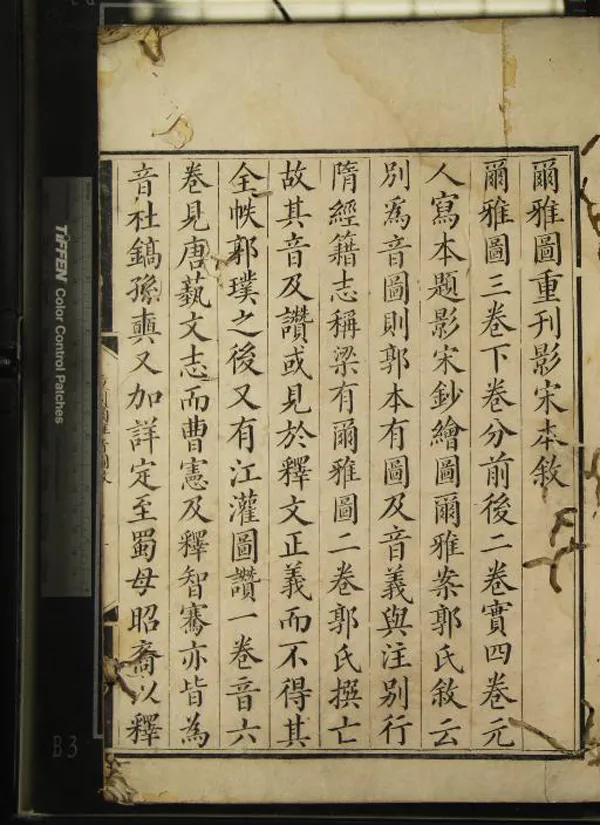 爾雅圖重刊影宋本敘
爾雅圖三卷下卷分前後二卷實四卷元
人寫本題影宋鈔繪圖爾雅案郭氏敘云
別爲音圖則郭本有圖及音義與注別行
隋經籍志稱梁有爾雅圖二卷郭氏撰亡
故其音及讚或見於釋文正義而不得其
全帙郭璞之後又有江灌圖讚一卷音六
卷見唐蓺文志而曹憲及釋智騫亦皆為
音杜鎬孫奭又加詳定至蜀毋昭裔以釋
TIFFEN Color Control Patches
B3